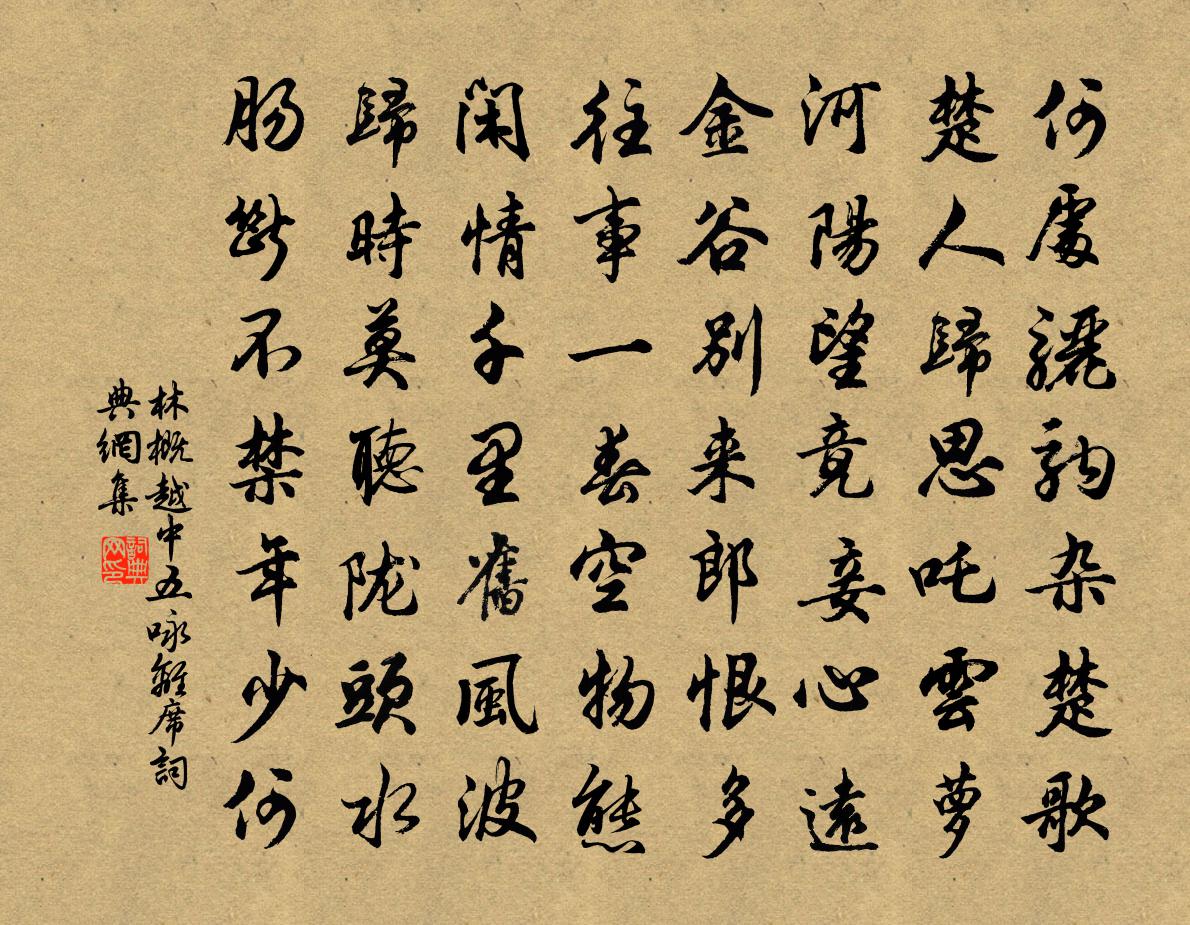 何處驪駒杂楚歌
楚人歸思吒雲夢
河陽望竟妾心遠
金谷別来郎恨多
往事一春空物態
閑情千里舊風波
歸時莫聽陇頭水
肠斷不禁年少何
林概越中五咏離席詞
典網集
詞典
网印